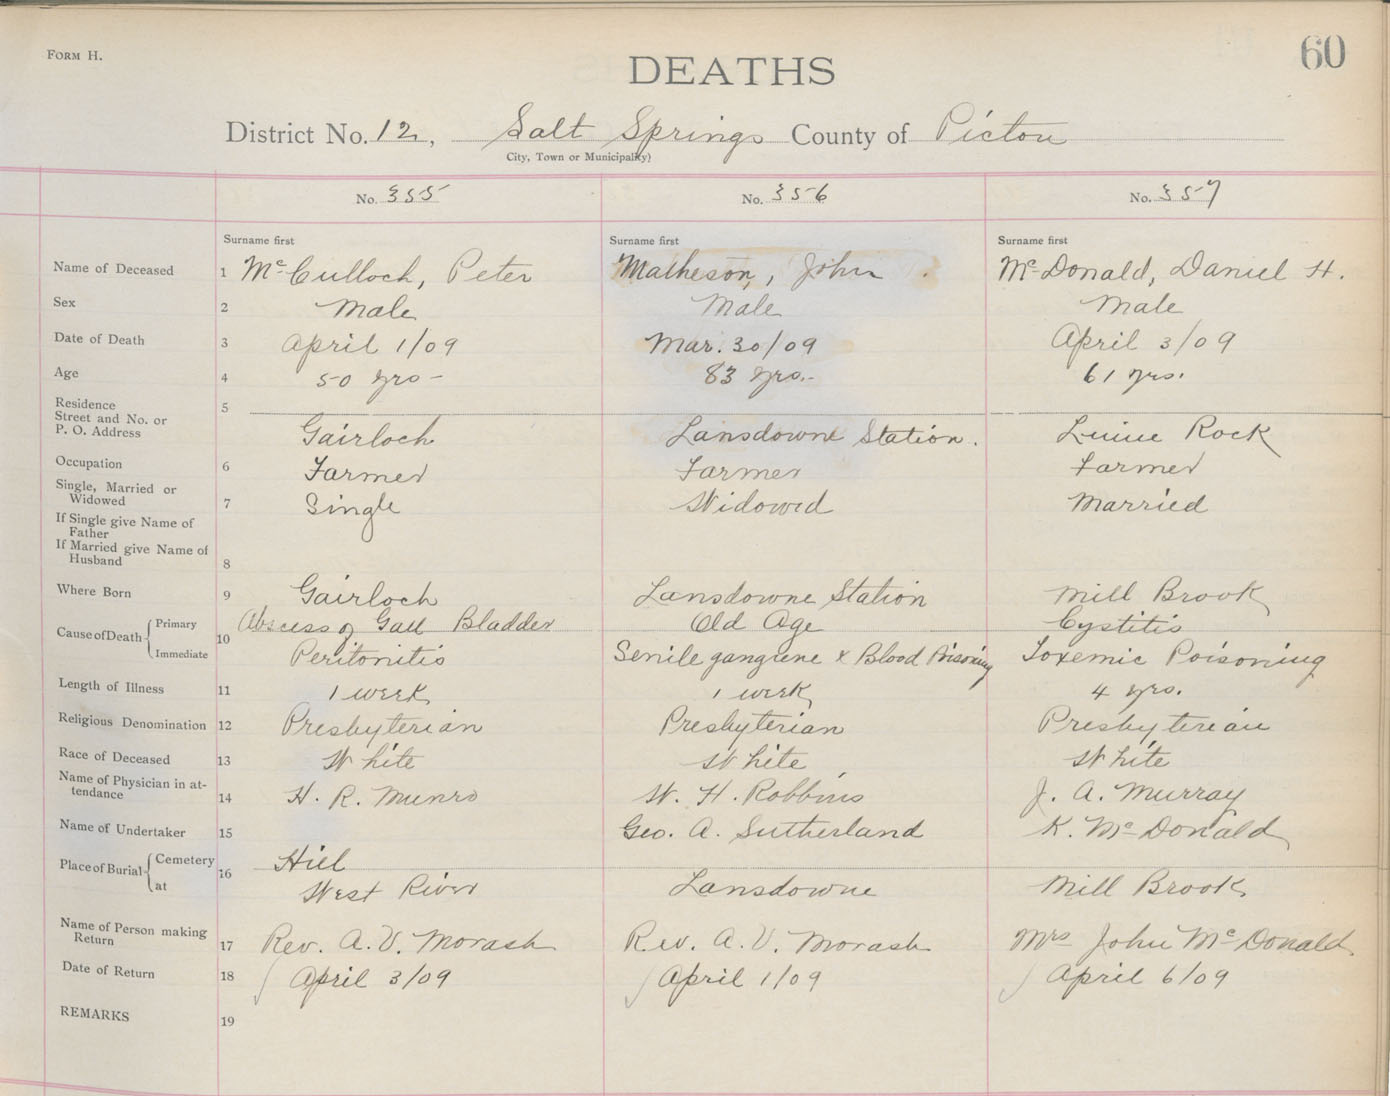 FORM H.
60
DEATHS
District No. 12, Salt Springs County of Pictou
City, Town or Municipality)
No. 355 No. 356 No. 357
Surname first Surname first Surname first
Name of Deceased 1 McCulloch, Peter Matheson, John McDonald, Daniel H.
Sex 2 Male Male Male
Date of Death 3 April 1/09 Mar. 30/09 April 3/09
Age 4 50 yrs - 83 yrs. - 61 yrs.
Residence
Street and No. or
P. O. Address 5 Gairloch Lansdowne Station. Lime Rock
Occupation 6 Farmer Farmer Farmer
Single, Married or
Widowed 7 Single Widowed Married
If Single give Name of
Father
If Married give Name of
Husband 8
Where Born 9 Gairloch Lansdowne Station Mill Brook
Cause of Death Primary 10 Abscess of Gall Bladder Old Age Cystitis
Immediate Peritonitis Senile gangrene & Blood Poisoning Toxemic Poisoning
Length of Illness 11 1 week 1 week 4 yrs.
Religious Denomination 12 Presbyterian Presbyterian Presbyterian
Race of Deceased 13 White White White
Name of Physician in at-
tendance 14 H. R. Munro W. H. Robbins J. A. Murray
Name of Undertaker 15 Geo. A. Sutherland K. McDonald
Place of Burial Cemetery 16 Hill
at West River Lansdowne Mill Brook
Name of Person making
Return 17 Rev. A. V. Morash Rev. A. V. Morash Mrs John McDonald
Date of Return 18 April 3/09 April 1/09 April 6/09
REMARKS 19